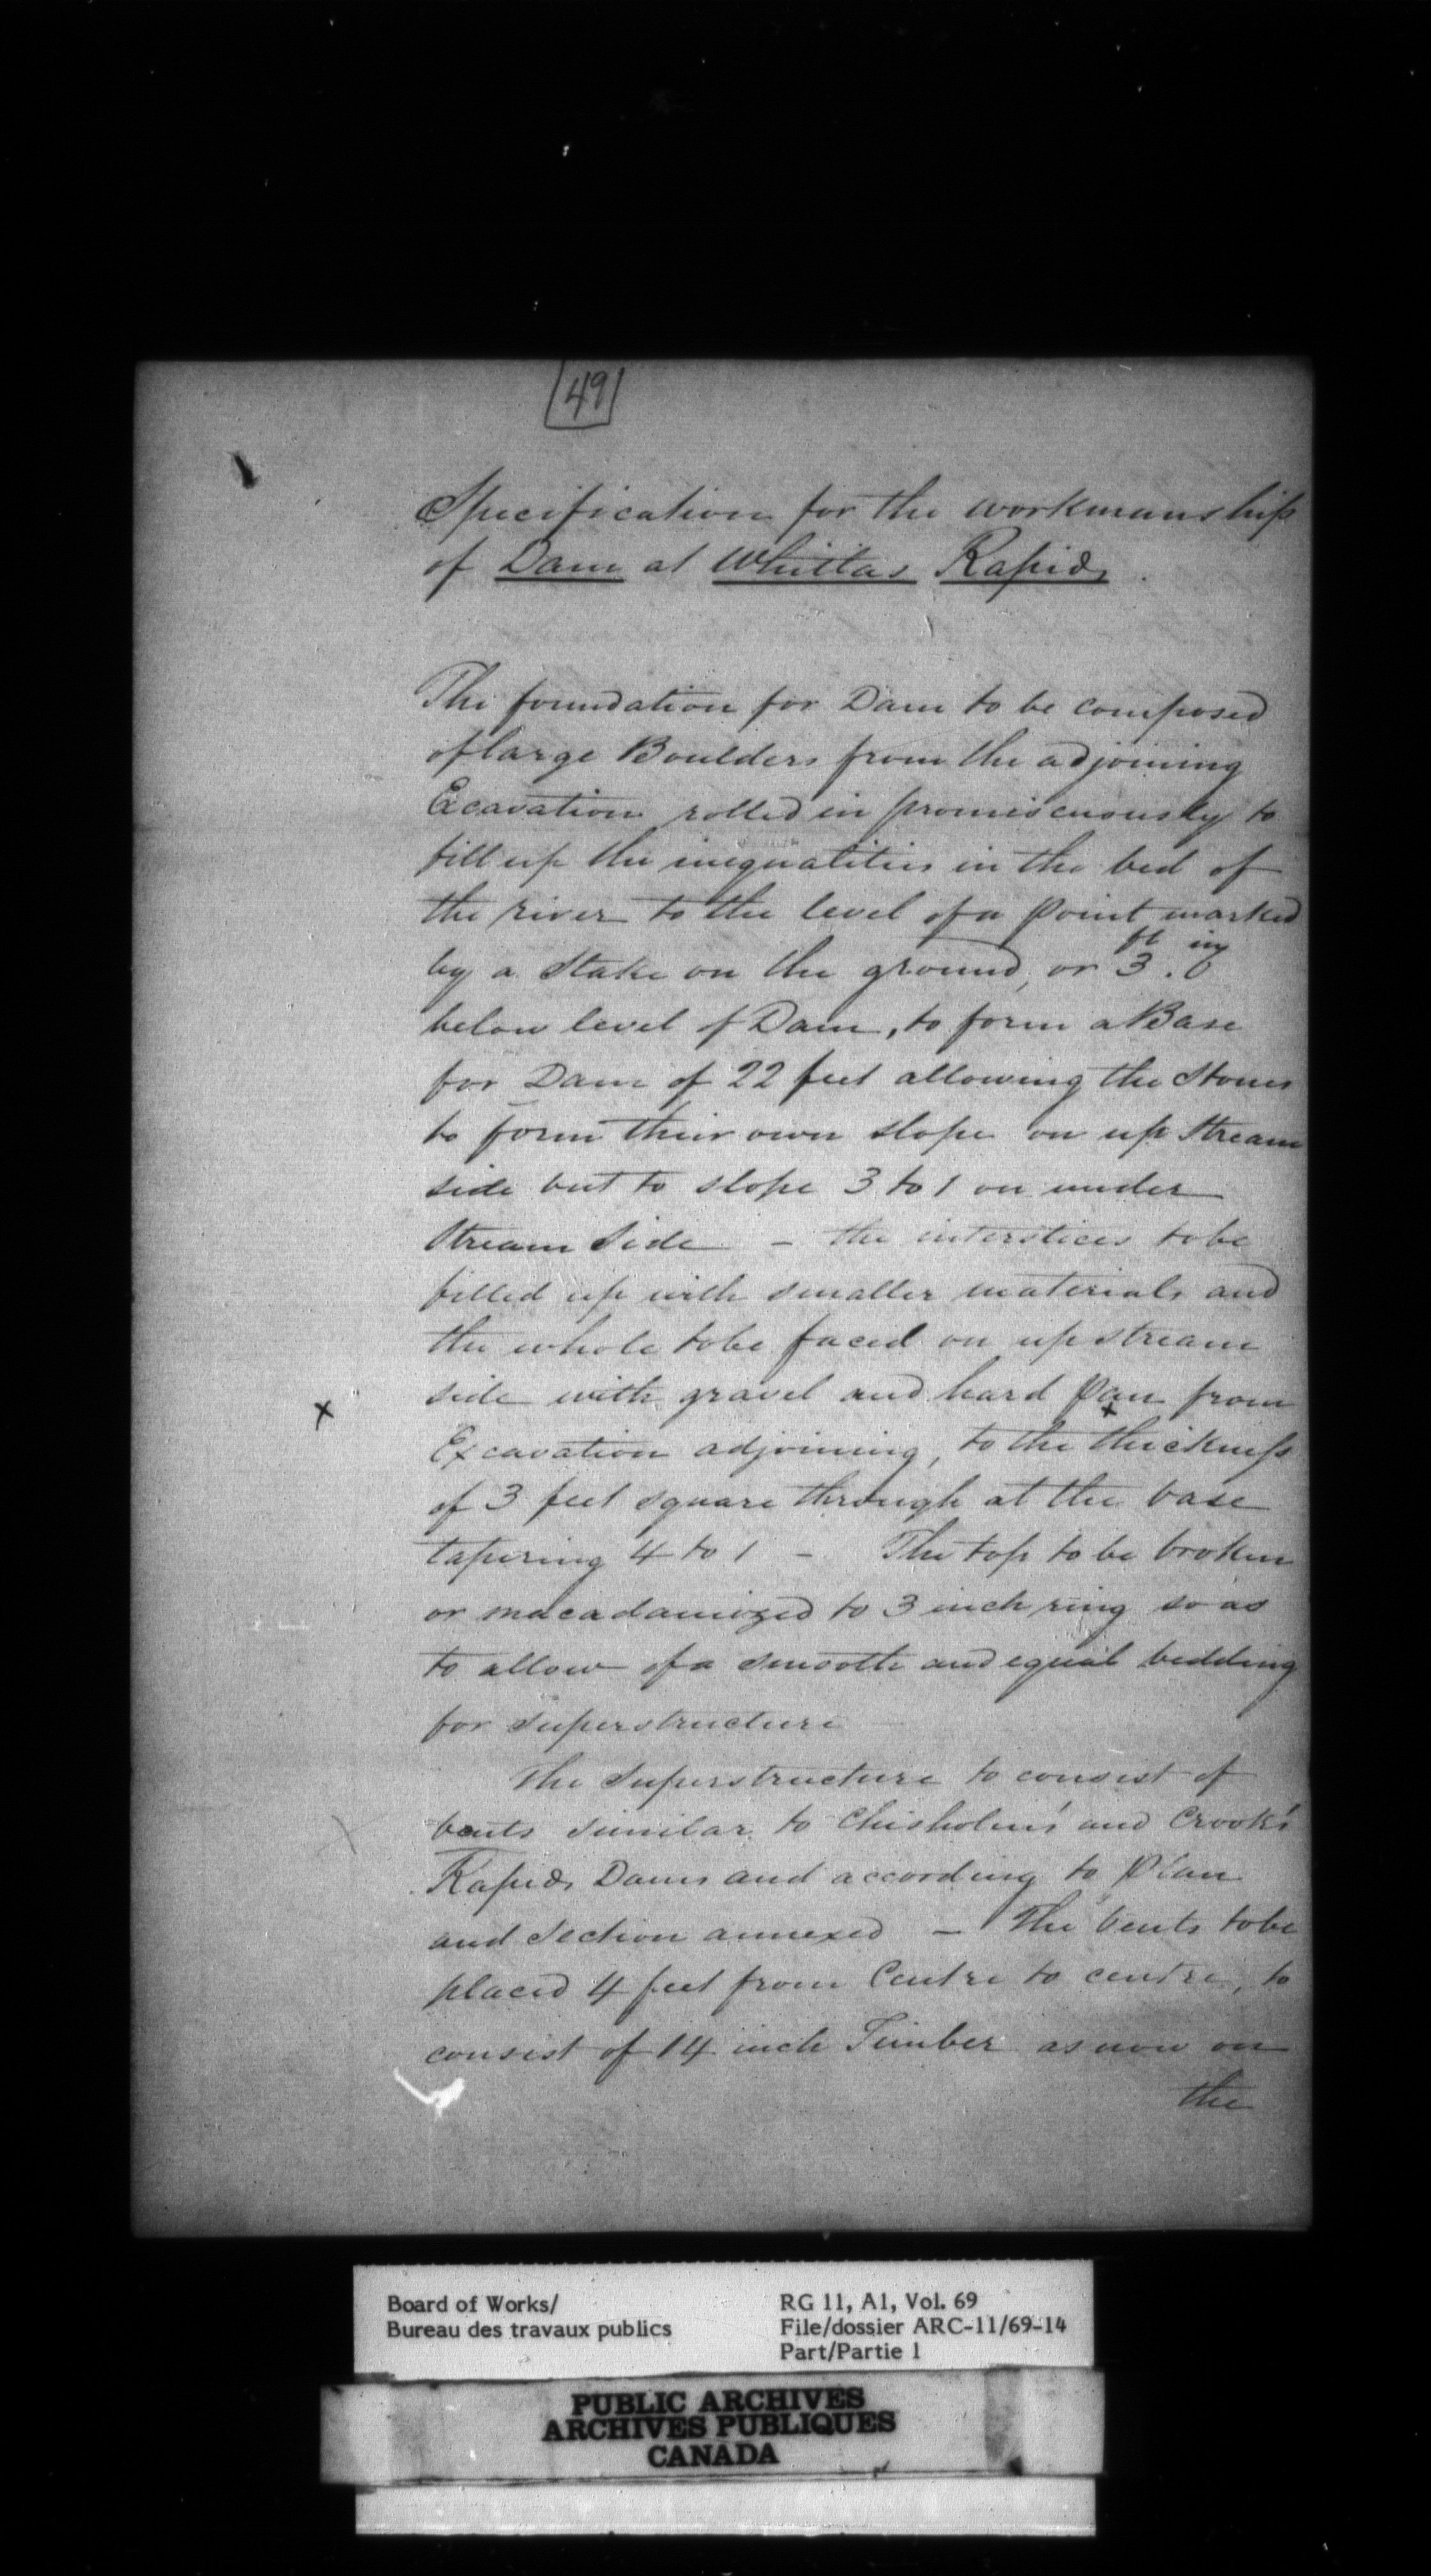 49
Specification for the workmanship
of Dam at Whitlas Rapids
The foundation for Dam to be composed
of large Boulders from the adjoining
Excavation rolled in promiscuously to
fill up the inequalities in the bed of
the river to the level of a point marked
by a Stake on the ground, or 3 ft . 0 in
below level of Dam, to form a Base
for Dam of 22 feet allowing the Stones
to form their own slope on up Stream
side but to slope 3 to 1 on under
Stream Side – the interstices to be
filled up with smaller materials and
the whole to be faced on up stream
x side with gravel and hard pan from
Excavation adjoining, to the thickness
of 3 feet square through at the base
tapering 4 to 1 – The top to be broken
or macadamized to 3 inch ring so as
to allow of a smooth and equal bedding
for superstructure
The Superstructure to consist of
bents similar to Chisholm's and Crook's
Rapids Dams and according to Plan
and Section annexed – The bents to be
placed 4 feet from Centre to centre, to
consist of 14 inch Timber as now on
the
Board of Works/
Bureau des travaux publics
RG 11, A1, Vol. 69
File/dossier ARC-11/69-14
Part/Partie 1
PUBLIC ARCHIVES
ARCHIVES PUBLIQUES
CANADA